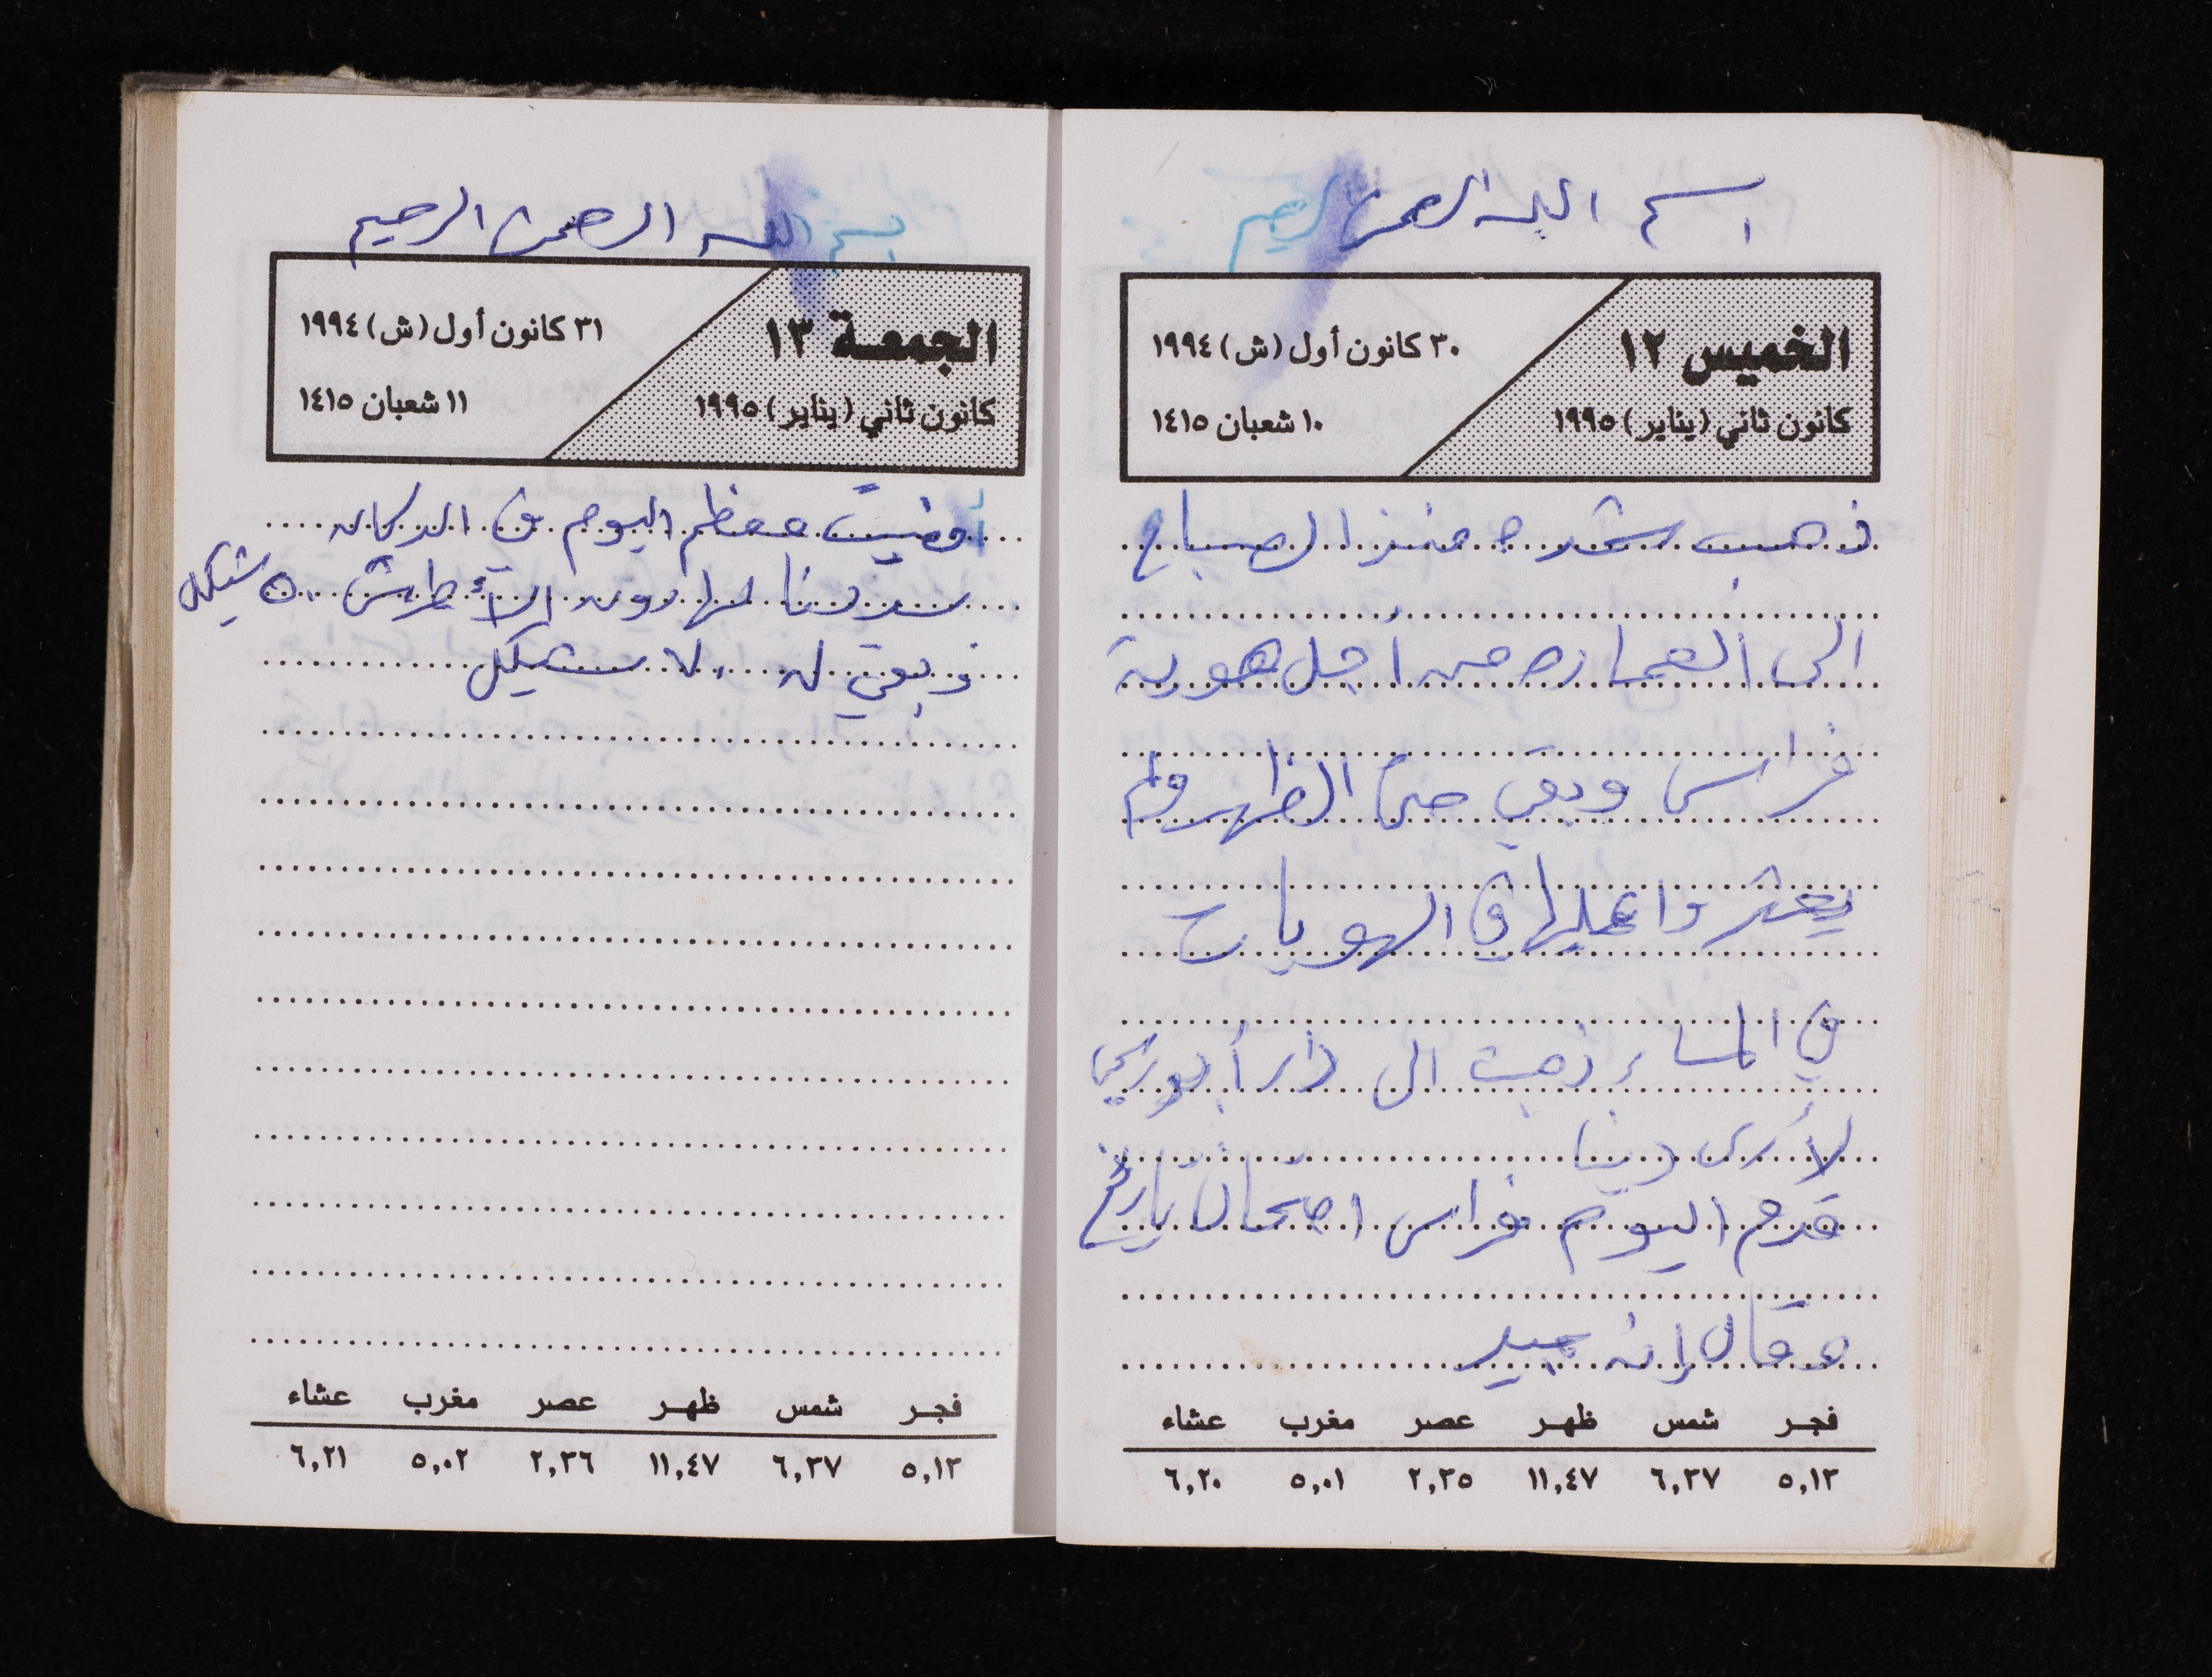 اسم الله الرحمن الرحيم
الخميس ١٢
كانون ثاني (يناير) ١٩٩٥
٣٠ كانون أول (ش) ١٩٩٤
١٠ شعبان ١٤١٥
ذهب شحده منذ الصباح
الى العماره من أجل هوية
فراس وبقي حتى الظهر ولم
يعثروا عليها في الهويات
في المساء ذهبت الى دار أبو
لأرى دينا
قدم اليوم فراس امتحان تاريخ
وقال إنه جيد
فجر شمس ظهر عصر مغرب عشاء
٥,١٢ ٦,٣٧ ١١,٤٧ ٢,٣٥ ٥,٠١ ٦,٢٠
بسم الله الرحمن الرحيم
الجمعة ١٣
كانون ثاني (يناير) ١٩٩٥
٣١ كانون أول (ش) ١٩٩٤
١١ شعبان ١٤١٥
أمضيت معظم اليوم في الدكان
سددنا لهارون الأطرش ٥٠ شيكل
وبقي له ٧٠ شيكل
فجر شمس ظهر عصر مغرب عشاء
٥,١٢ ٦,٣٧ ١١,٤٧ ٢,٣٦ ٥,٠٢ ٦,٢١